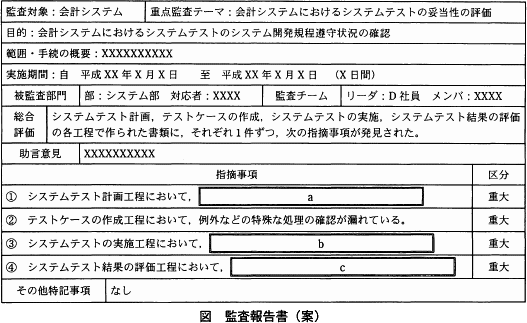 監査対象：会計システム　重点監査テーマ：会計システムにおけるシステムテストの妥当性の評価
目的：会計システムにおけるシステムテストのシステム開発規程遵守状況の確認
範囲・手続の概要：XXXXXXXXXX
実施期間：自　平成 XX 年 X 月 X 日　至　平成 XX 年 X 月 X 日　(X 日間)
被監査部門　部：システム部　対応者：XXXX　監査チーム　リーダ：D 社員　メンバ：XXXX
総合　システムテスト計画，テストケースの作成，システムテストの実施，システムテスト結果の評価
評価　の各工程で作られた書類に，それぞれ 1 件ずつ，次の指摘事項が発見された。
助言意見　XXXXXXXXXX
指摘事項　区分
① システムテスト計画工程において，　a　重大
② テストケースの作成工程において，例外などの特殊な処理の確認が漏れている。　重大
③ システムテストの実施工程において，　b　重大
④ システムテスト結果の評価工程において，　c　重大
その他特記事項　なし
図　監査報告書（案）